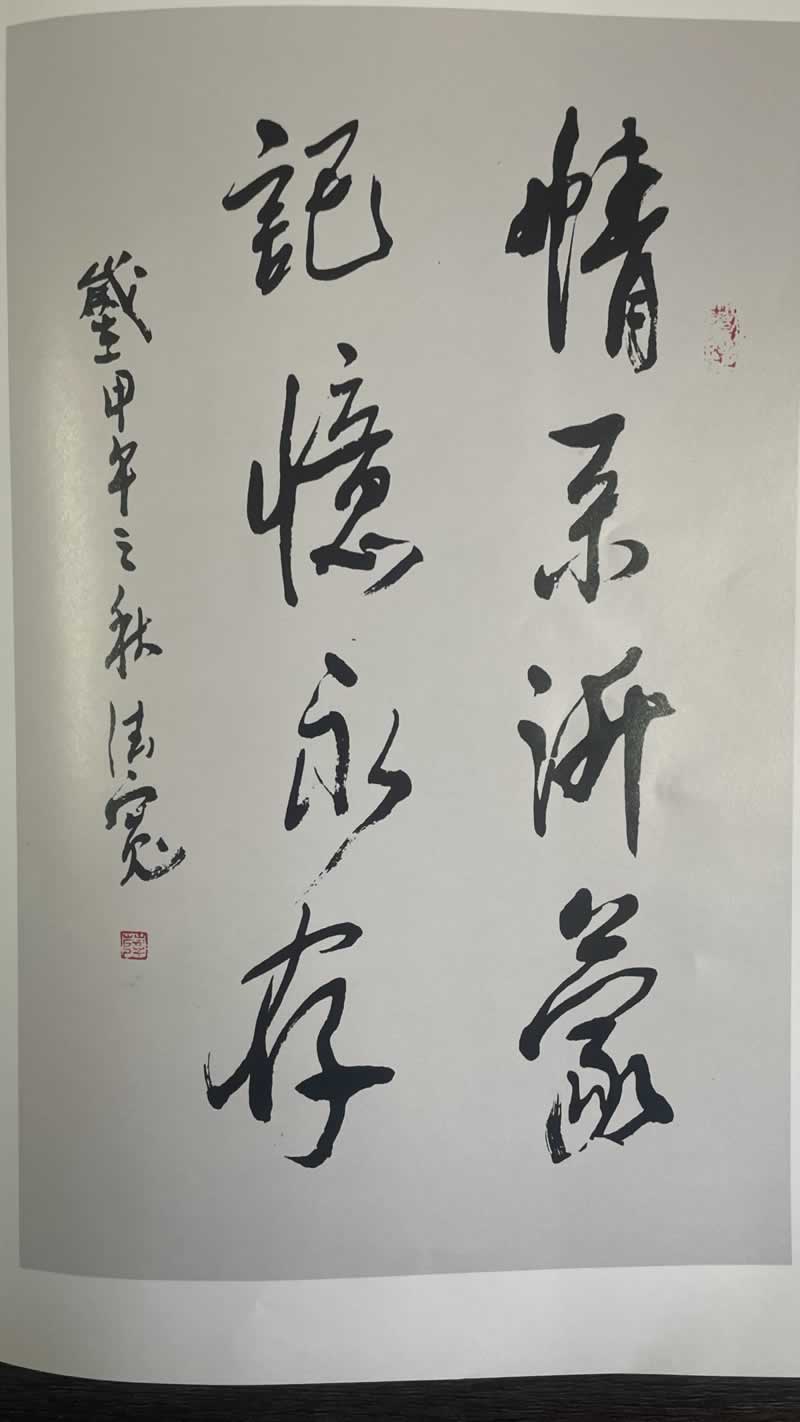 情系沂蒙
記憶永存
歲在甲午之秋 法寬